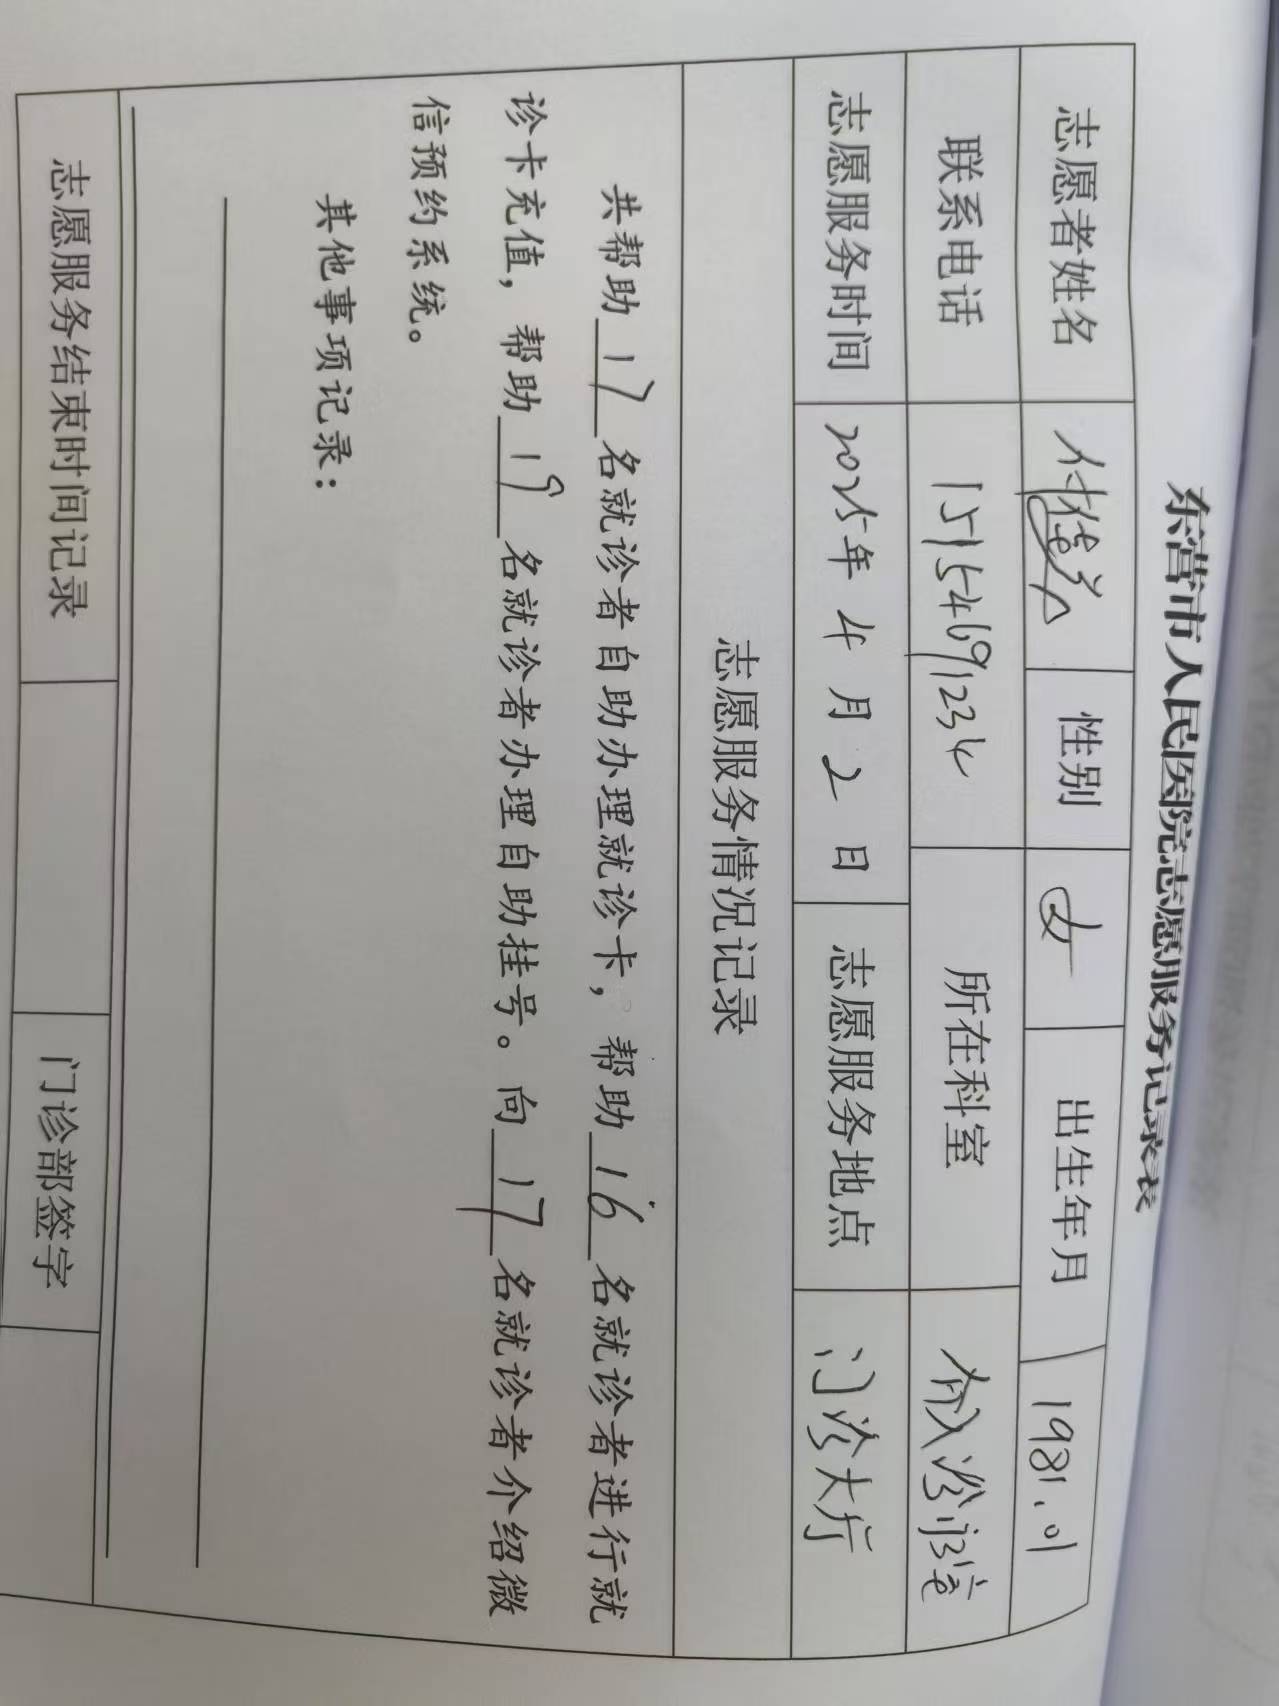 东营市人民医院志愿服务记录表
志愿者姓名 性别 女 出生年月 1981.01
联系电话 15154691234 所在科室
志愿服务时间 2025年 4 月 2 日 志愿服务地点 门诊大厅
志愿服务情况记录
共帮助 17 名就诊者自助办理就诊卡，帮助 16 名就诊者进行就
诊卡充值，帮助 19 名就诊者办理自助挂号。向 17 名就诊者介绍微
信预约系统。
其他事项记录：
志愿服务结束时间记录 门诊部签字